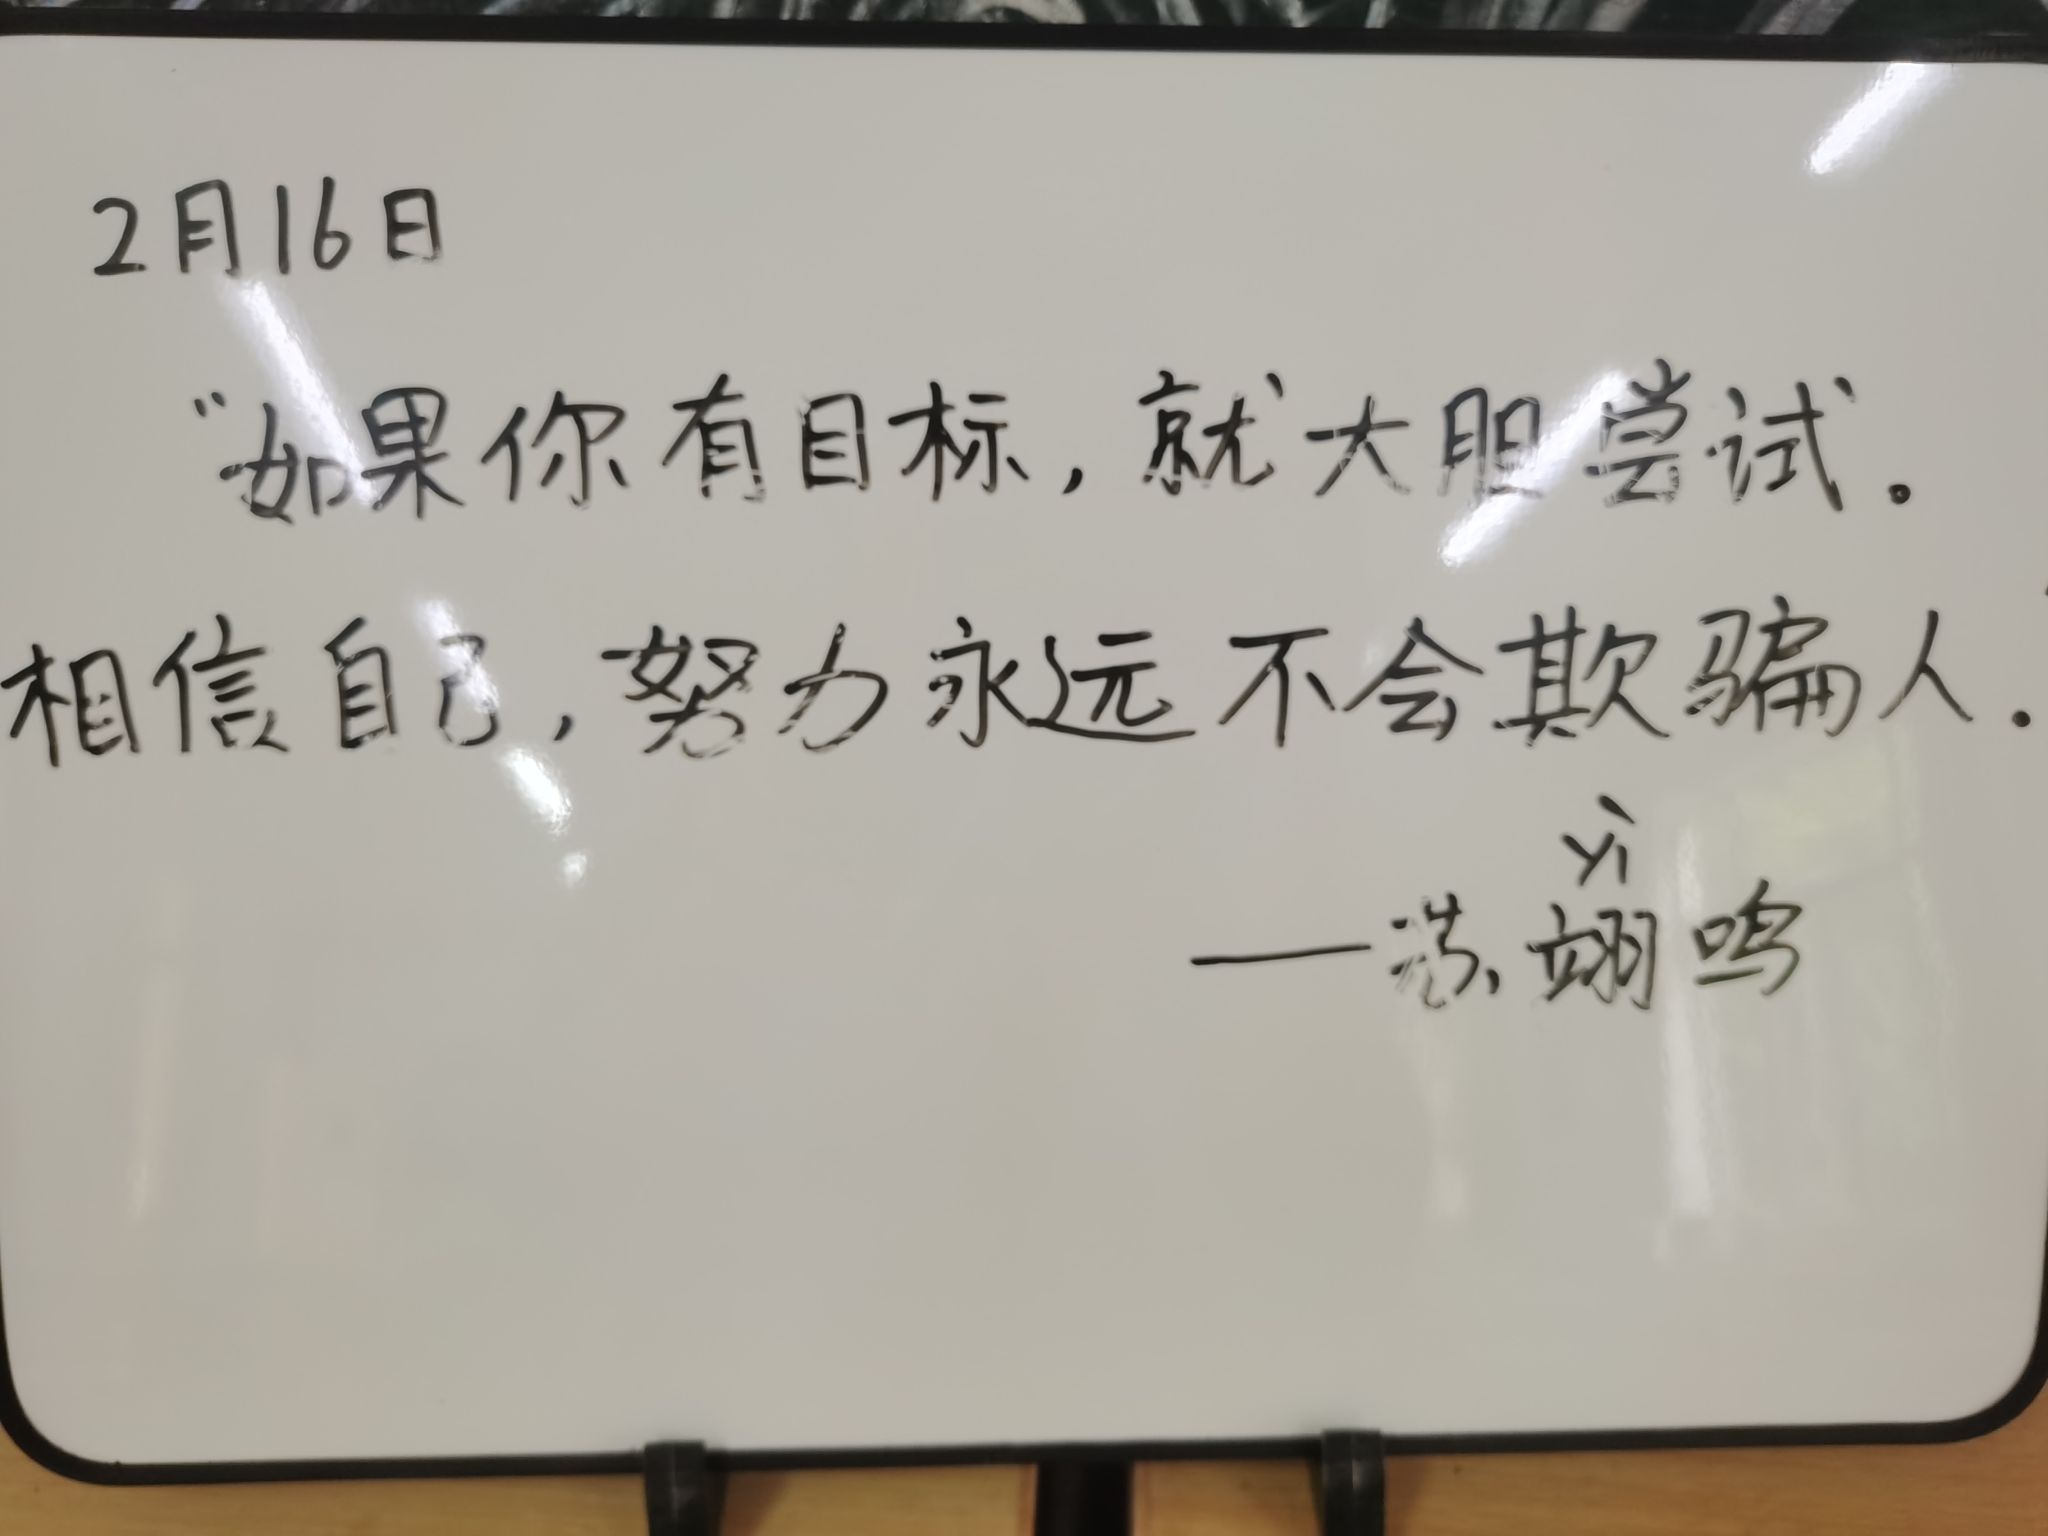 2月16日
“如果你有目标,就大胆尝试.
相信自己,努力永远不会欺骗人.
yì
——苏翊鸣